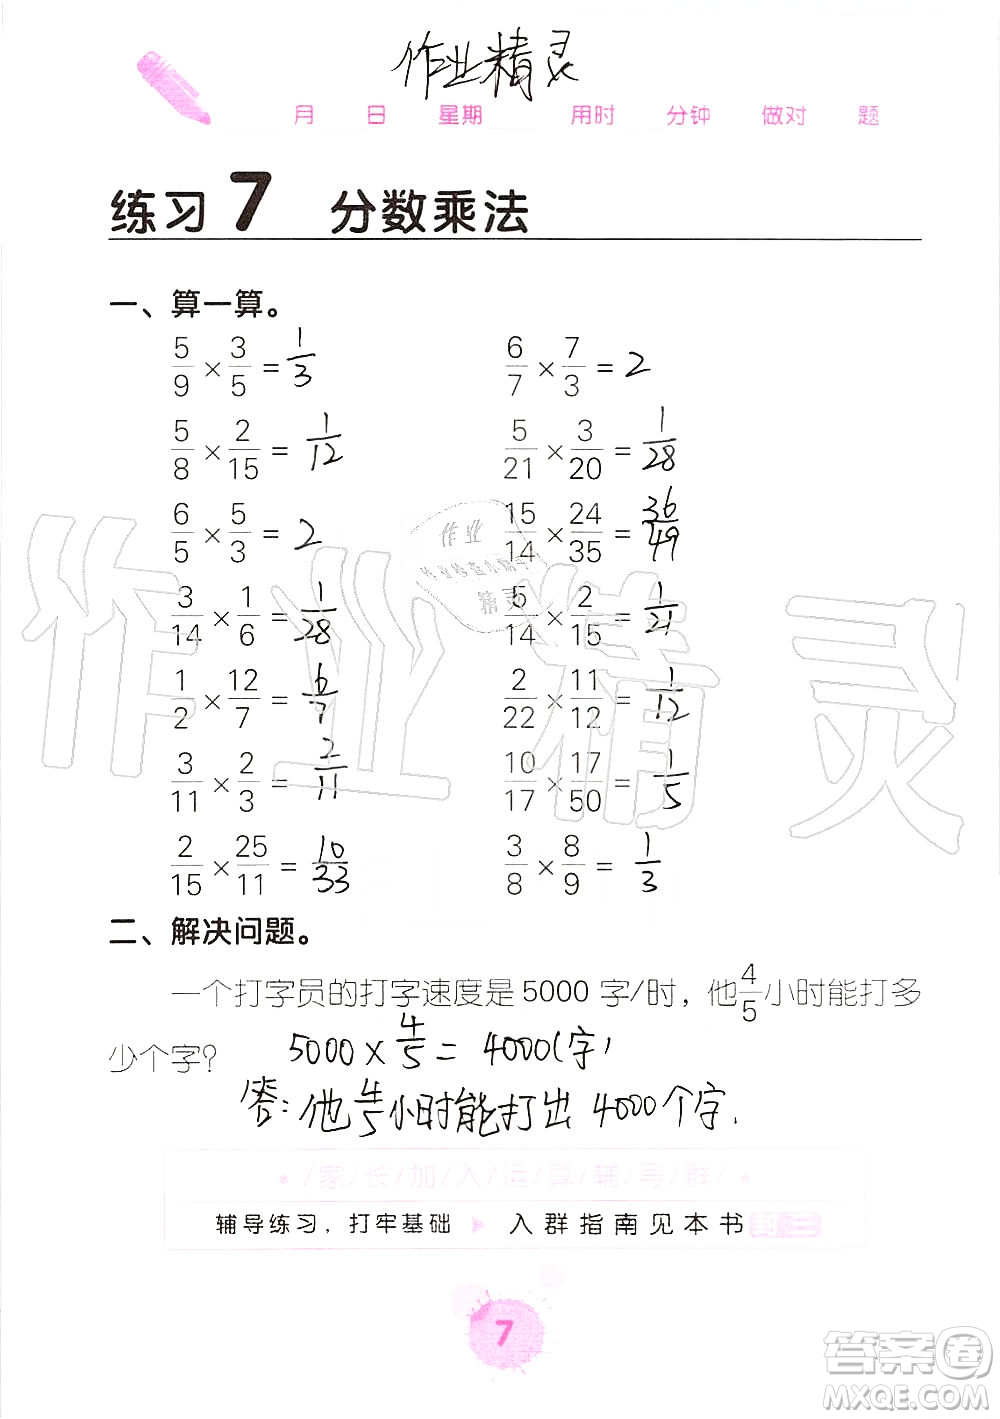 作业精灵
月 日 星期 用时 分钟 做对 题
练习7 分数乘法
一、算一算。
5/9 × 3/5 = 1/3 6/7 × 7/3 = 2
5/8 × 2/15 = 1/12 5/21 × 3/20 = 1/28
6/5 × 5/3 = 2 15/14 × 24/35 = 36/49
3/14 × 1/6 = 1/28 5/14 × 2/15 = 1/21
1/2 × 12/7 = 6/7 2/22 × 11/12 = 1/12
3/11 × 2/3 = 2/11 10/17 × 17/50 = 1/5
2/15 × 25/11 = 10/33 3/8 × 8/9 = 1/3
二、解决问题。
一个打字员的打字速度是 5000 字/时，他4/5小时能打多
少个字？ 5000 × 4/5 = 4000(字)
答：他4/5小时能打出 4000个字.
/家/长/加/入/运/算/辅/导/群/
辅导练习，打牢基础 入群指南见本书封二
7
作业精灵
作业
作业检查小帮手
精灵
答案圈
MXQE.COM